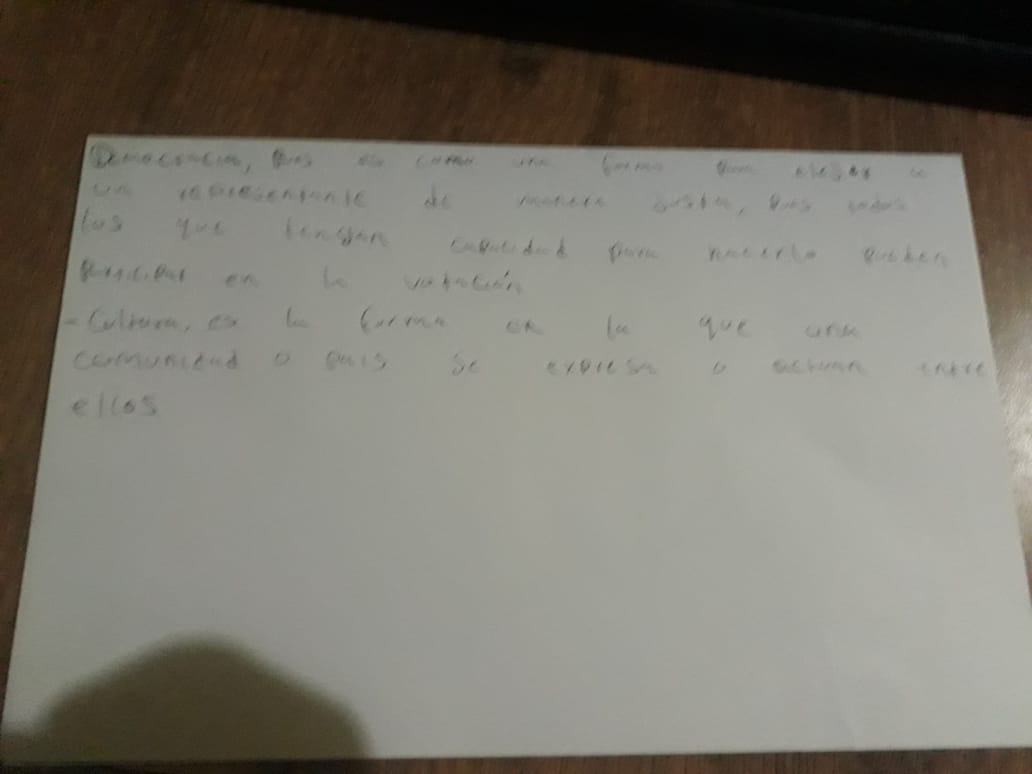 Democracia, pues es como una forma para elegir a
un representante de manera justa, pues todos
los que tengan capacidad para hacerlo pueden
participar en la votación
- Cultura, es la forma en la que una
comunidad o pais se expresa o actuan entre
ellos